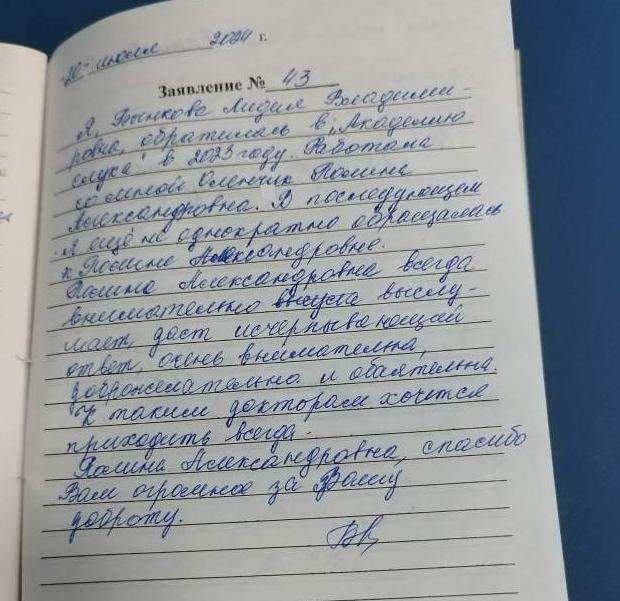 "20" июля 2024 г.
Заявление № 43
Я, Вынкова Лидия Владими-
ровна, обратилась в "Академию
слуха" в 2023 году. Работала
со мной Оленчик Полина
Александровна. В последующем
я ещё не однократно обращалась
к Полине Александровне.
Полина Александровна всегда
внимательно выслу-
шает, даст исчерпывающий
ответ, очень внимательна,
доброжелательна и обаятельна.
К таким докторам хочется
приходить всегда.
Полина Александровна, спасибо
Вам огромное за Вашу
доброту.